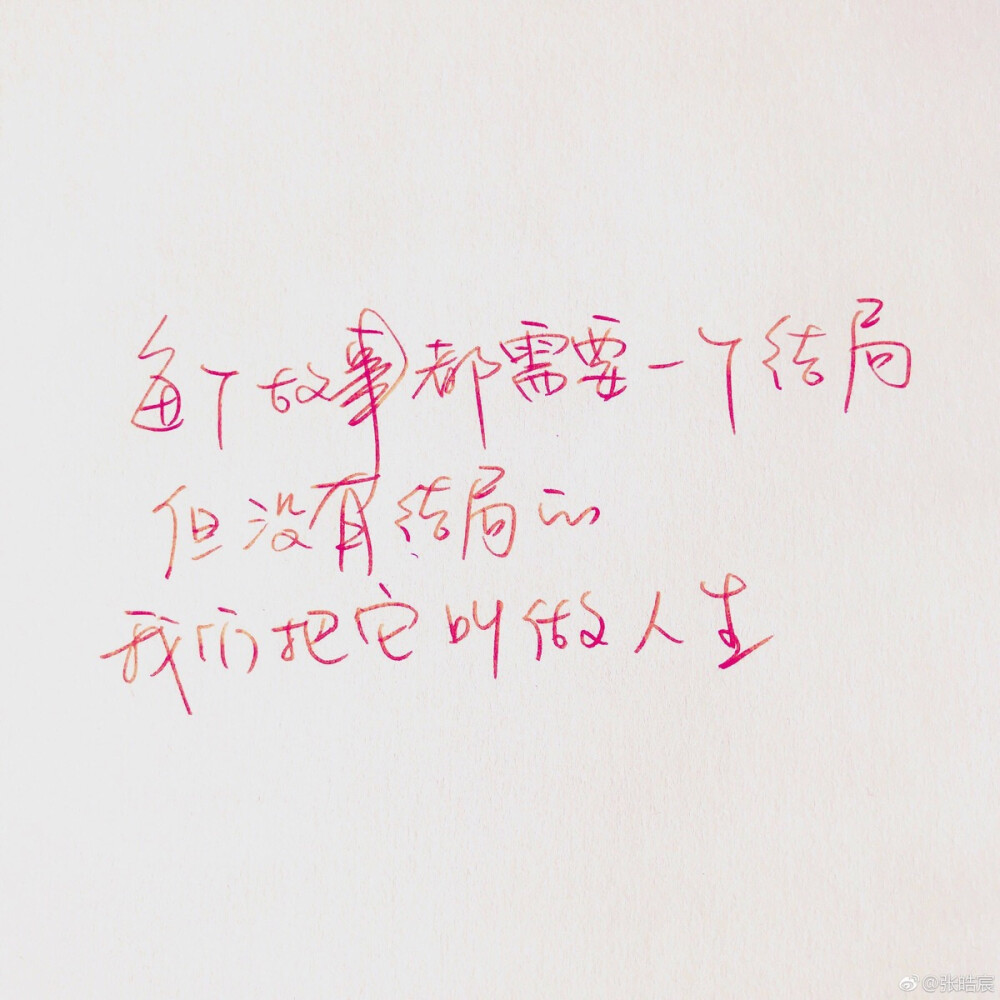 每个故事都需要一个结局
但没有结局的
我们把它叫做人生
@张皓宸